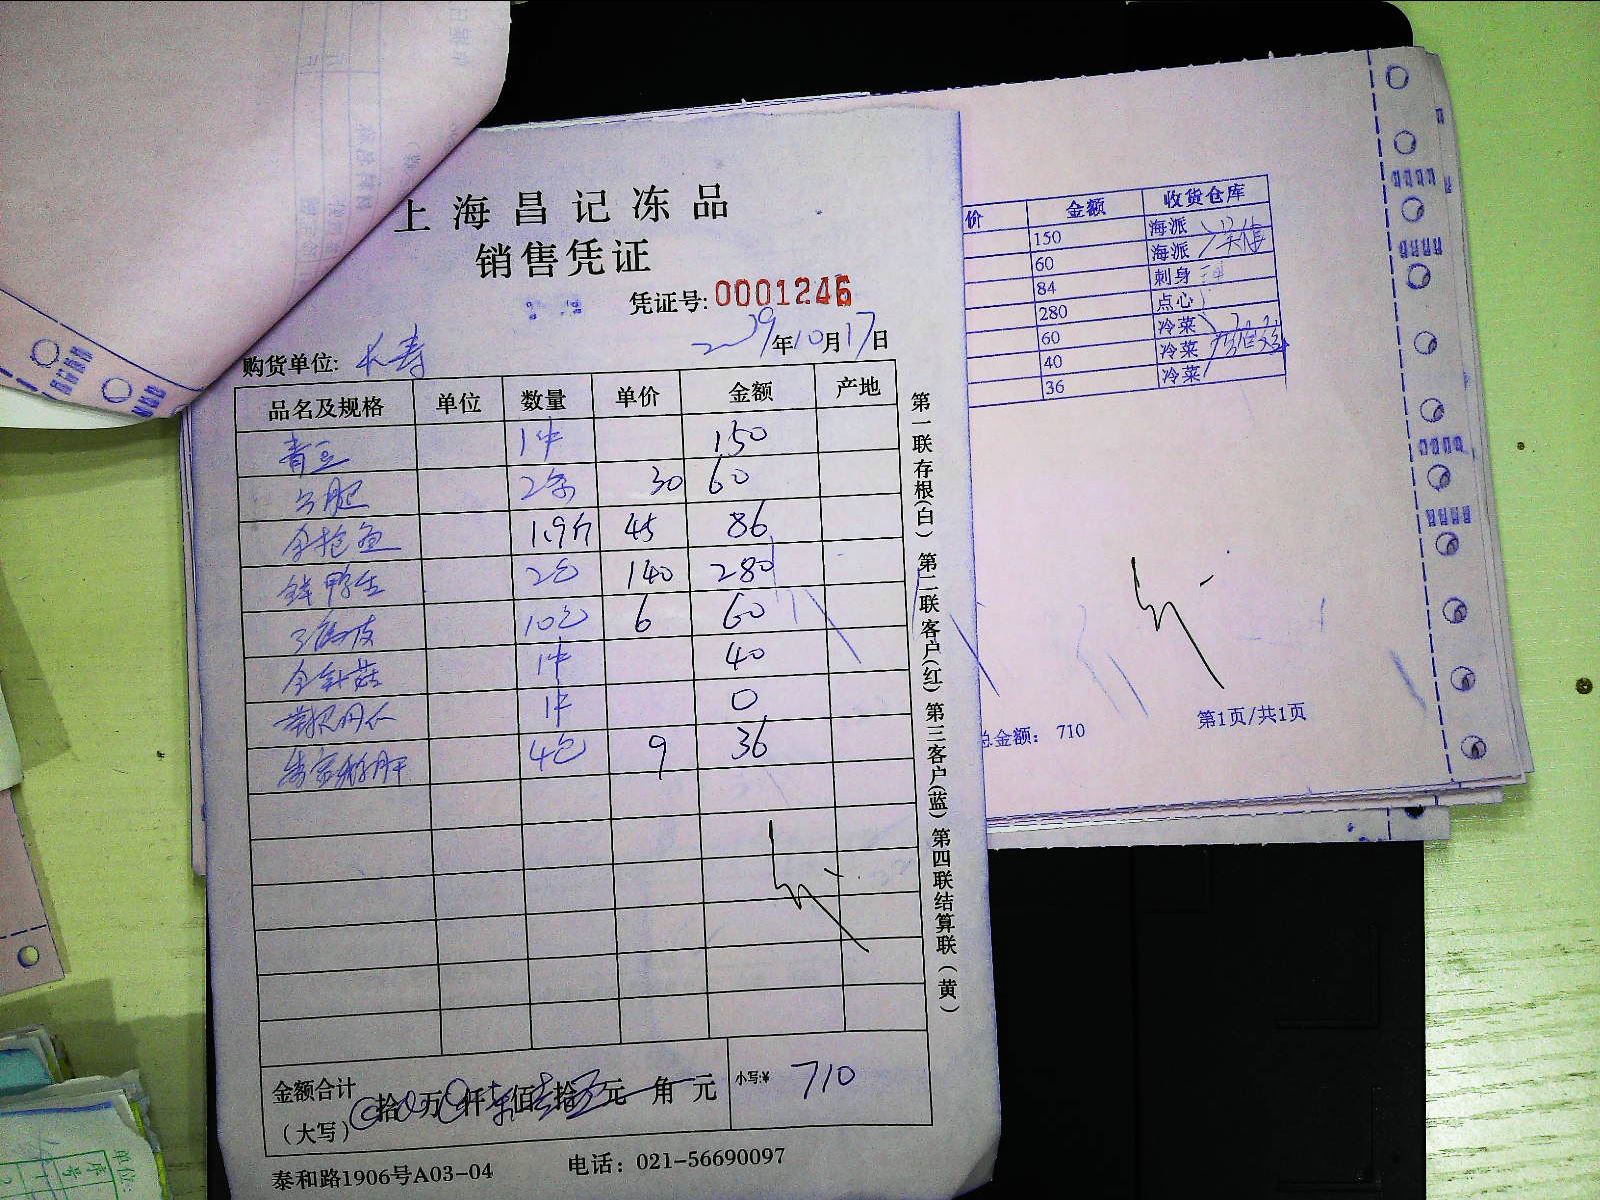 上海昌记冻品
销售凭证
凭证号: 0001246
购货单位: 长寿
年10月17日
品名及规格 单位 数量 单价 金额 产地
青豆 1件 150
2条 30 60
金枪鱼 1.9斤 45 86
2包 140 280
10包 6 60
金针菇 1件 40
1件 0
4包 9 36
金额合计
(大写)
拾 万 仟 佰 拾 元 角 元
小写:¥ 710
泰和路1906号A03-04 电话: 021-56690097
第一联存根(白) 第二联客户(红) 第三客户(蓝) 第四联结算联(黄)
价 金额 收货仓库
150 海派
60 海派
84 刺身
280 点心
60 冷菜
40 冷菜
36 冷菜
总金额: 710
第1页/共1页